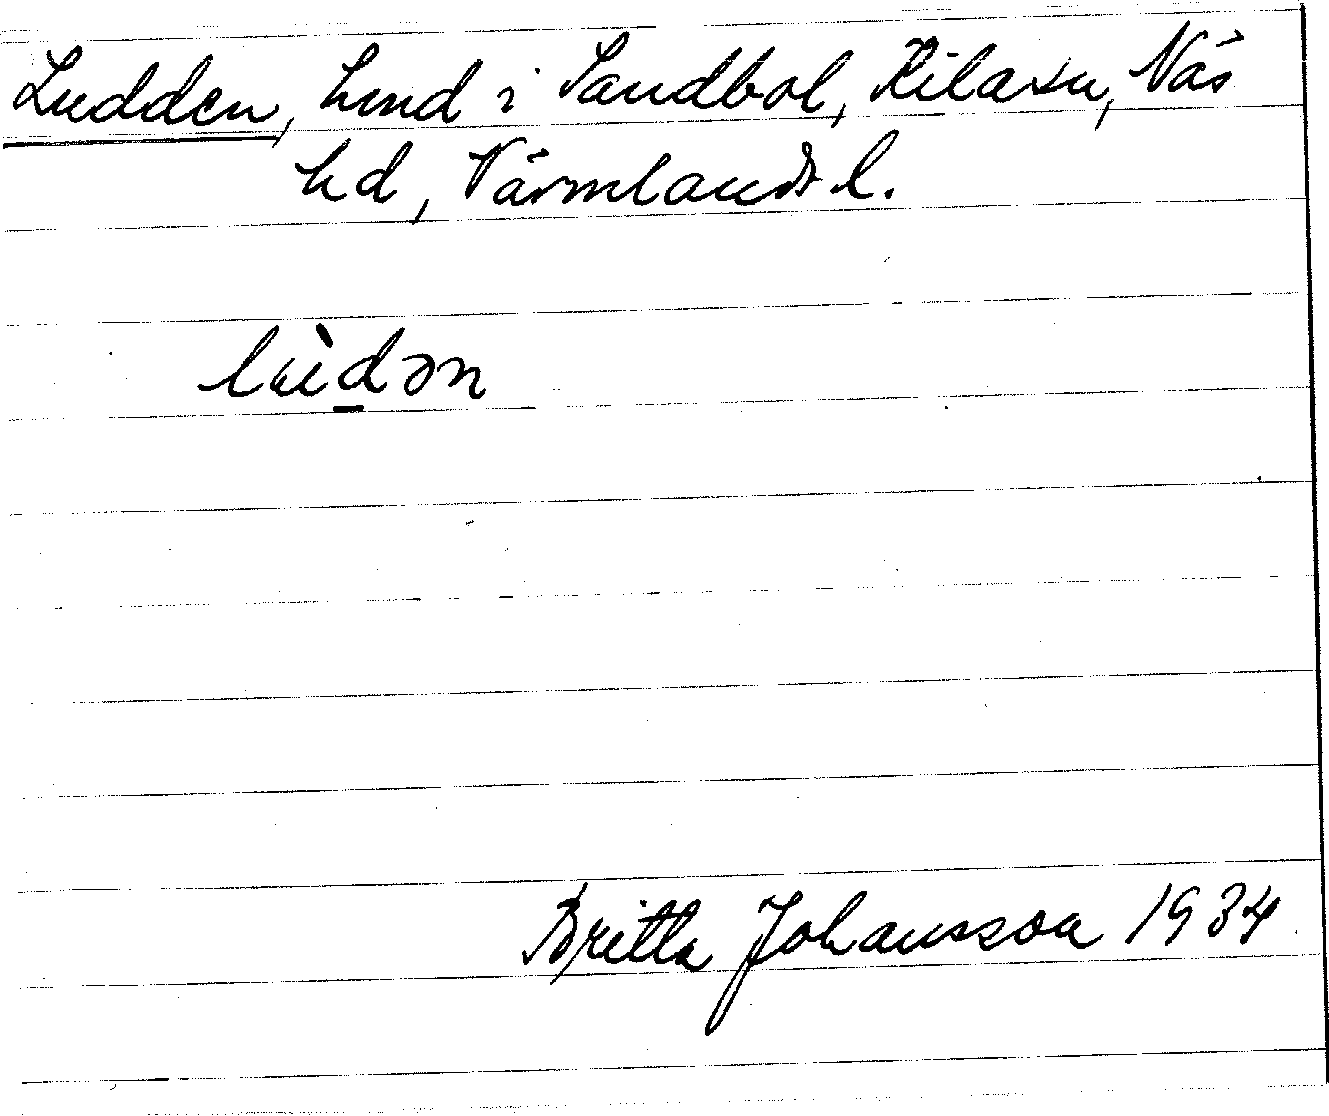 Ludden, hmd i Sandbol, Kila sn, Näs
hd, Värmlands l.
lùdən
Britta Johansson 1934